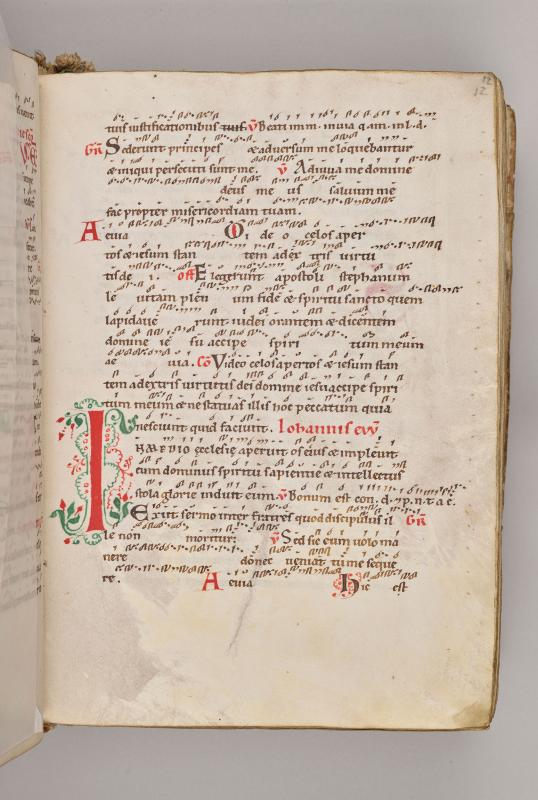 12
12
tuis iustificationibus tuis. V̄ Beati imm. in uia q. am. in l. d.
GR̄ Sederunt principes & aduersum me loquebantur
& iniqui persecuti sunt me. V̄ Adiuua me domine
deus me us saluum me
fac propter misericordiam tuam.
A euia Vi de o celos aper
tos & iesum stan tem adex tris uirtu
tis de i. off Elegerunt apostoli stephanum
le uitam plen um fide & spiritu sancto quem
lapidaue runt iudei orantem & dicentem
domine ie su accipe spiri tum meum
ae uia. Cō Video celos apertos & iesum stan
tem adextris uirtutis dei domine iesu accipe spiri
tum meum & ne statuas illis hoc peccatum quia
nesciunt quid faciunt. Iohannis eṽ
IN MEDIO ecclesie aperuit os eius & impleuit
eum dominus spiritu sapientie & intellectus
stola glorie induit eum. V̄ Bonum est con. d. & p. n. t. a e.
Exiit sermo inter fratres quod discipulus il GR̄
le non moritur. V̄ Sed sic eum uolo ma
nere donec ueniam tu me seque
re. A euia Hic est